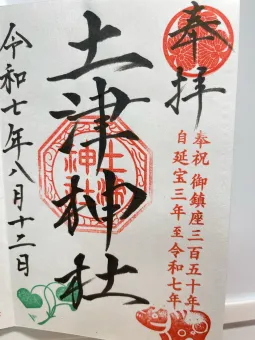 奉拝
奉祝 御鎮座三百五十年
自延宝三年 至令和七年
土津神社
土津神社
令和七年八月十二日